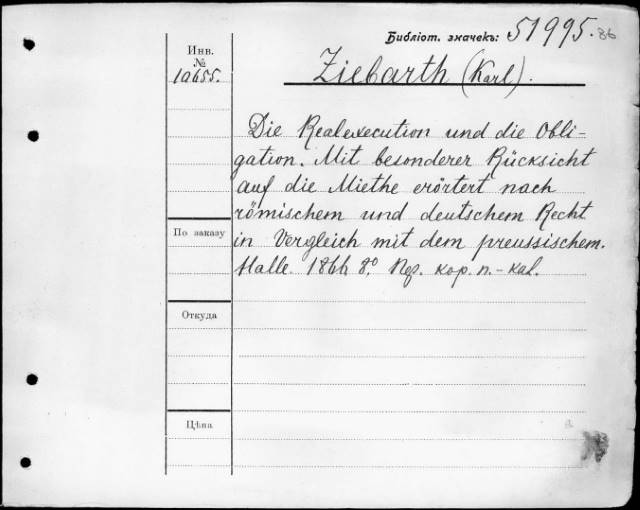 Библіот. значекъ: 51995.86
Инв.
№
10655.
Ziebarth (Karl).
Die Realexecution und die Obli-
gation. Mit besonderer Rücksicht
auf die Miethe erörtert nach
römischem und deutschem Recht
in Vergleich mit dem preussischem.
Halle. 1866 8.° кор. п.-кал.
По заказу
Откуда
Цѣна